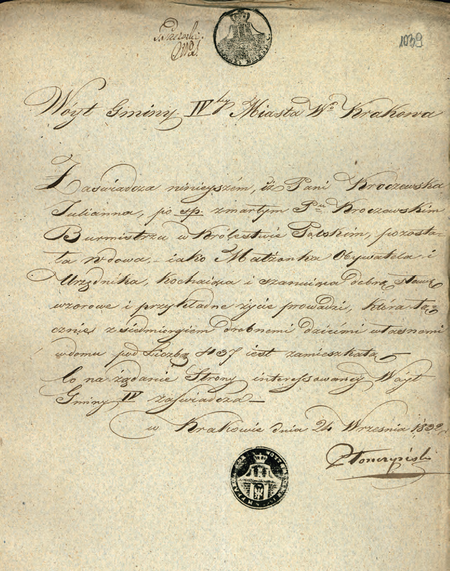 1039
Wóyt Gminy IV Miasta W. Krakowa
Zaświadcza ninieyszém, iż Pani Kroczewska
Julianna, po śp. zmarłym Panu Kroczewskim
Burmistrza w Królestwie Polskiem, pozosta-
ła wdowa, iako Małżonka Obywatela i
Urzędnika, Kochaiąca i szanuiąca dobrą sławę
wzorowe i przykładne życie prowadzi, która łą-
cznie z drobnemi dziećmi własnemi
w domu pod Liczbą 437 iest zamieszkała
Co na żądanie Strony interessowaney Wóyt
Gminy IV zaświadcza
w Krakowie dnia 24 Września